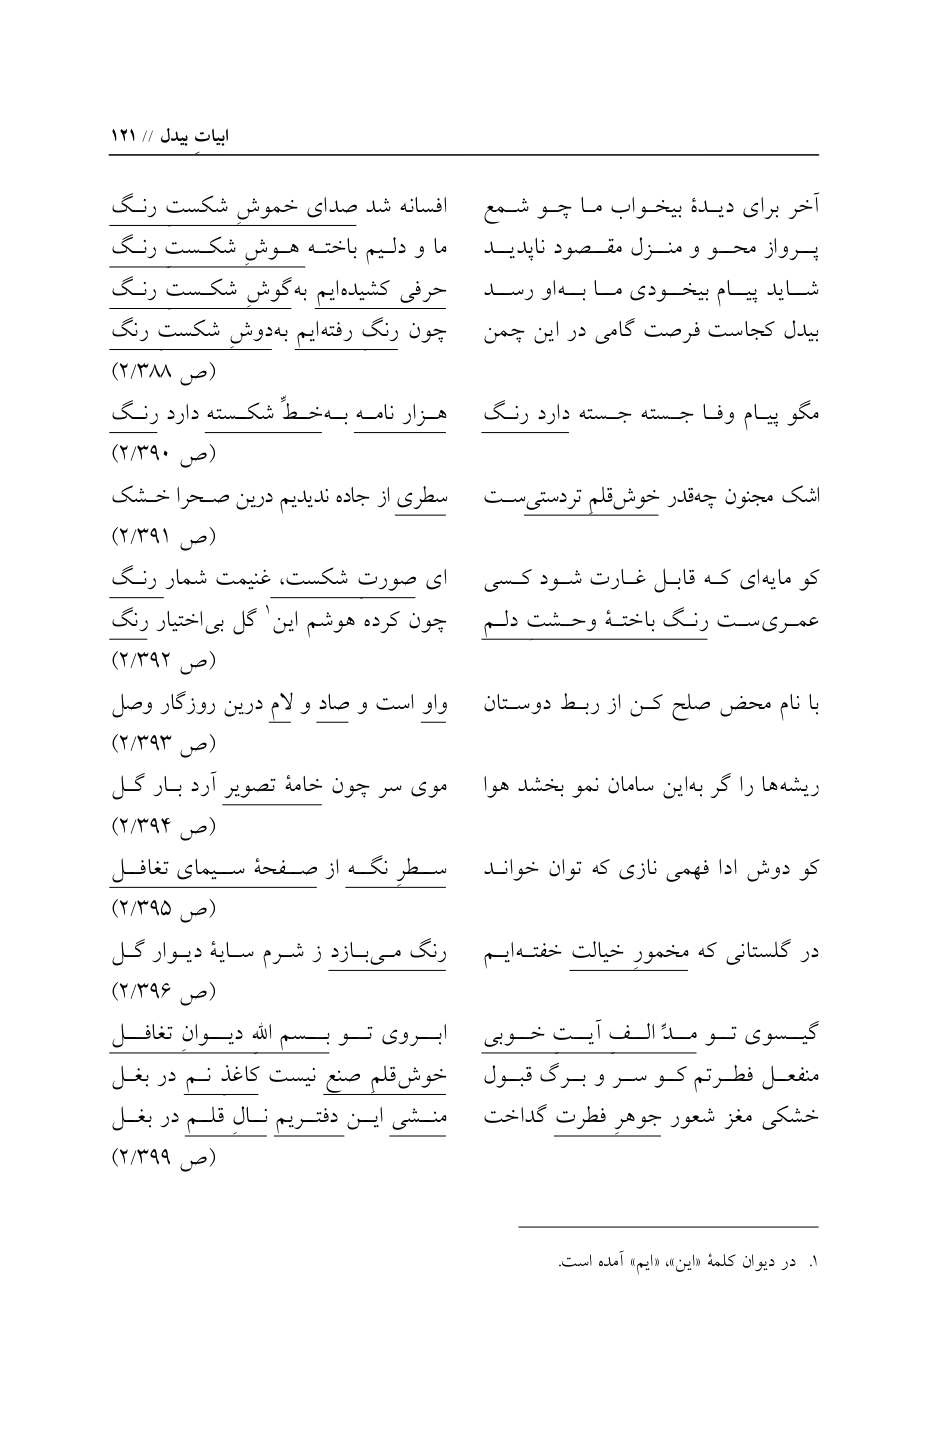 ابیاتِ بیدل // ۱۲۱
آخر برای دیدهٔ بیخواب ما چو شمع افسانه شد صدای خموشِ شکستِ رنگ
پرواز محو و منزل مقصود ناپدید ما و دلیم باخته هوشِ شکستِ رنگ
شاید پیام بیخودی ما به‌او رسد حرفی کشیده‌ایم به‌گوشِ شکستِ رنگ
بیدل کجاست فرصت گامی در این چمن چون رنگِ رفته‌ایم به‌دوشِ شکستِ رنگ
(ص ۲/۳۸۸)
مگو پیام وفا جسته جسته دارد رنگ هزار نامه به‌خطِّ شکسته دارد رنگ
(ص ۲/۳۹۰)
اشک مجنون چه‌قدر خوش‌قلمِ تردستی‌ست سطری از جاده ندیدیم درین صحرا خشک
(ص ۲/۳۹۱)
کو مایه‌ای که قابل غارت شود کسی ای صورتِ شکست، غنیمت شمار رنگ
عمری‌ست رنگ باختهٔ وحشتِ دلم چون کرده هوشم این۱ گل بی‌اختیار رنگ
(ص ۲/۳۹۲)
با نام محض صلح کن از ربط دوستان واو است و صاد و لام درین روزگار وصل
(ص ۲/۳۹۳)
ریشه‌ها را گر به‌این سامان نمو بخشد هوا موی سر چون خامهٔ تصویر آرد بار گل
(ص ۲/۳۹۴)
کو دوش ادا فهمی نازی که توان خواند سطرِ نگه از صفحهٔ سیمای تغافل
(ص ۲/۳۹۵)
در گلستانی که مخمورِ خیالت خفته‌ایم رنگ می‌بازد ز شرم سایهٔ دیوار گل
(ص ۲/۳۹۶)
گیسوی تو مدِّ الفِ آیتِ خوبی ابروی تو بسم اللهِ دیوانِ تغافل
منفعل فطرتم کو سر و برگ قبول خوش‌قلمِ صنع نیست کاغذِ نم در بغل
خشکی مغز شعور جوهرِ فطرت گداخت منشی این دفتریم نالِ قلم در بغل
(ص ۲/۳۹۹)
۱. در دیوان کلمهٔ «این»، «ایم» آمده است.